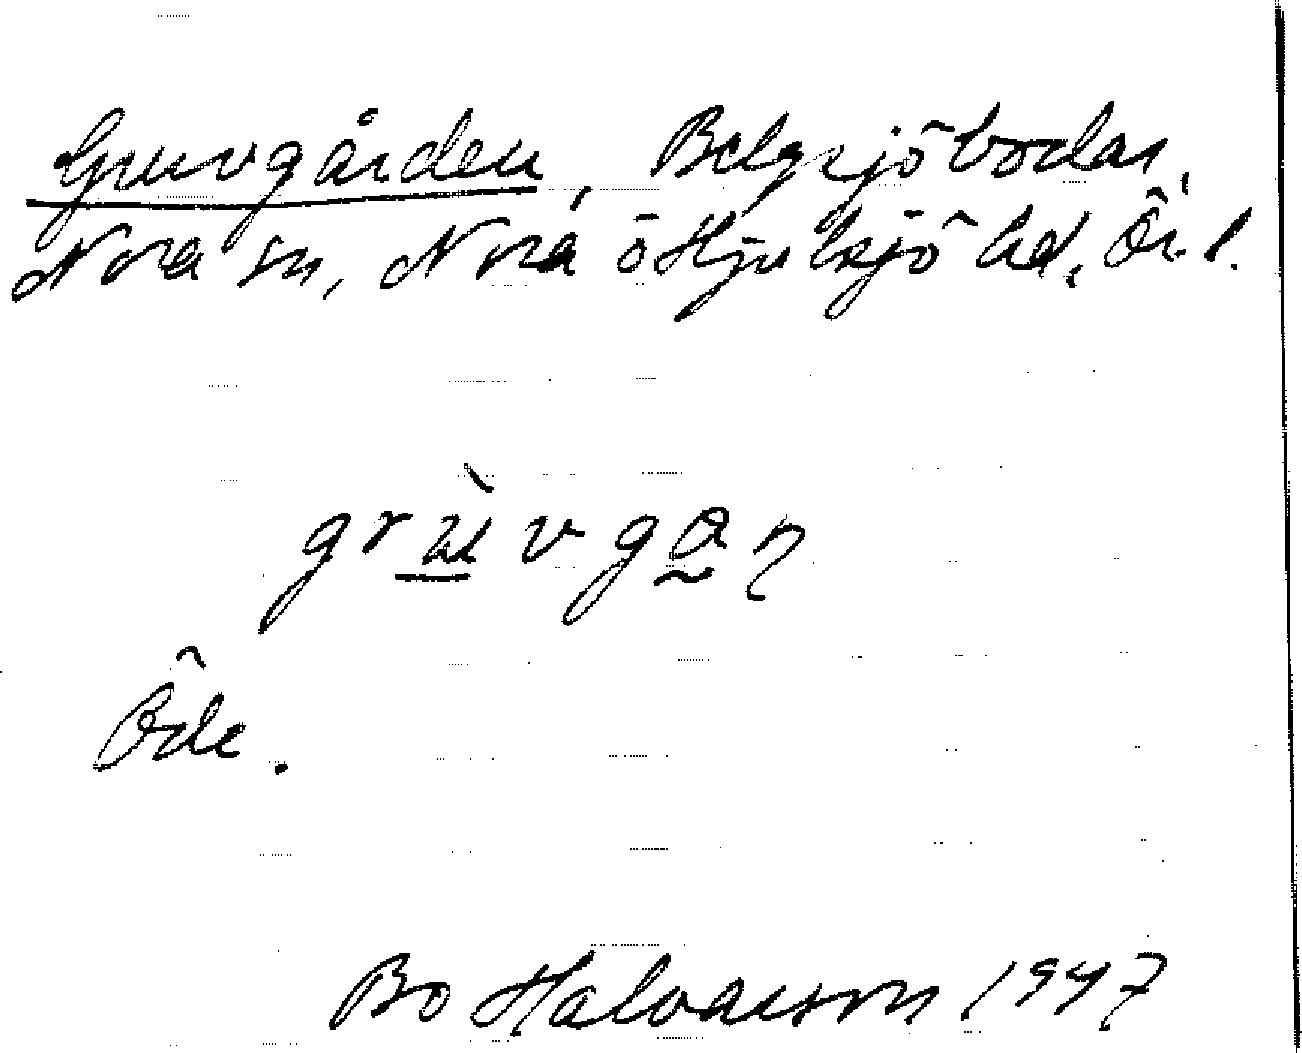 Gruvgården, Belgsjöbodar,
Nora sn, Nora o Hjulsjö hd, Ör. l.
grùvgan
Öde.
Bo Halvarson 1947